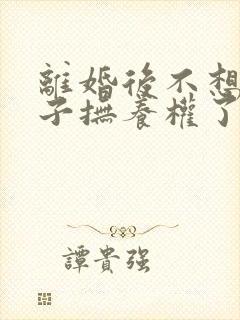 離婚後不想
子撫養權了
譚貴強